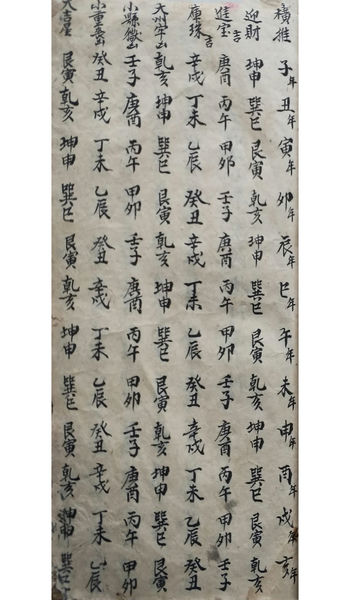 橫推 子年 丑年 寅年 卯年 辰年 巳年 午年 未年 申年 酉年 戌年 亥年
迎財 坤申 巽巳 艮寅 乾亥 坤申 巽巳 艮寅 乾亥 坤申 巽巳 艮寅 乾亥
進宝吉 庚酉 丙午 甲卯 壬子 庚酉 丙午 甲卯 壬子 庚酉 丙午 甲卯 壬子
庫珠吉 辛戌 丁未 乙辰 癸丑 辛戌 丁未 乙辰 癸丑 辛戌 丁未 乙辰 癸丑
大州牢山 乾亥 坤申 巽巳 艮寅 乾亥 坤申 巽巳 艮寅 乾亥 坤申 巽巳 艮寅
小縣獄山 壬子 庚酉 丙午 甲卯 壬子 庚酉 丙午 甲卯 壬子 庚酉 丙午 甲卯
癸丑 辛戌 丁未 乙辰 癸丑 辛戌 丁未 乙辰 癸丑 辛戌 丁未 乙辰
艮寅 乾亥 坤申 巽巳 艮寅 乾亥 坤申 巽巳 艮寅 乾亥 坤申 巽巳